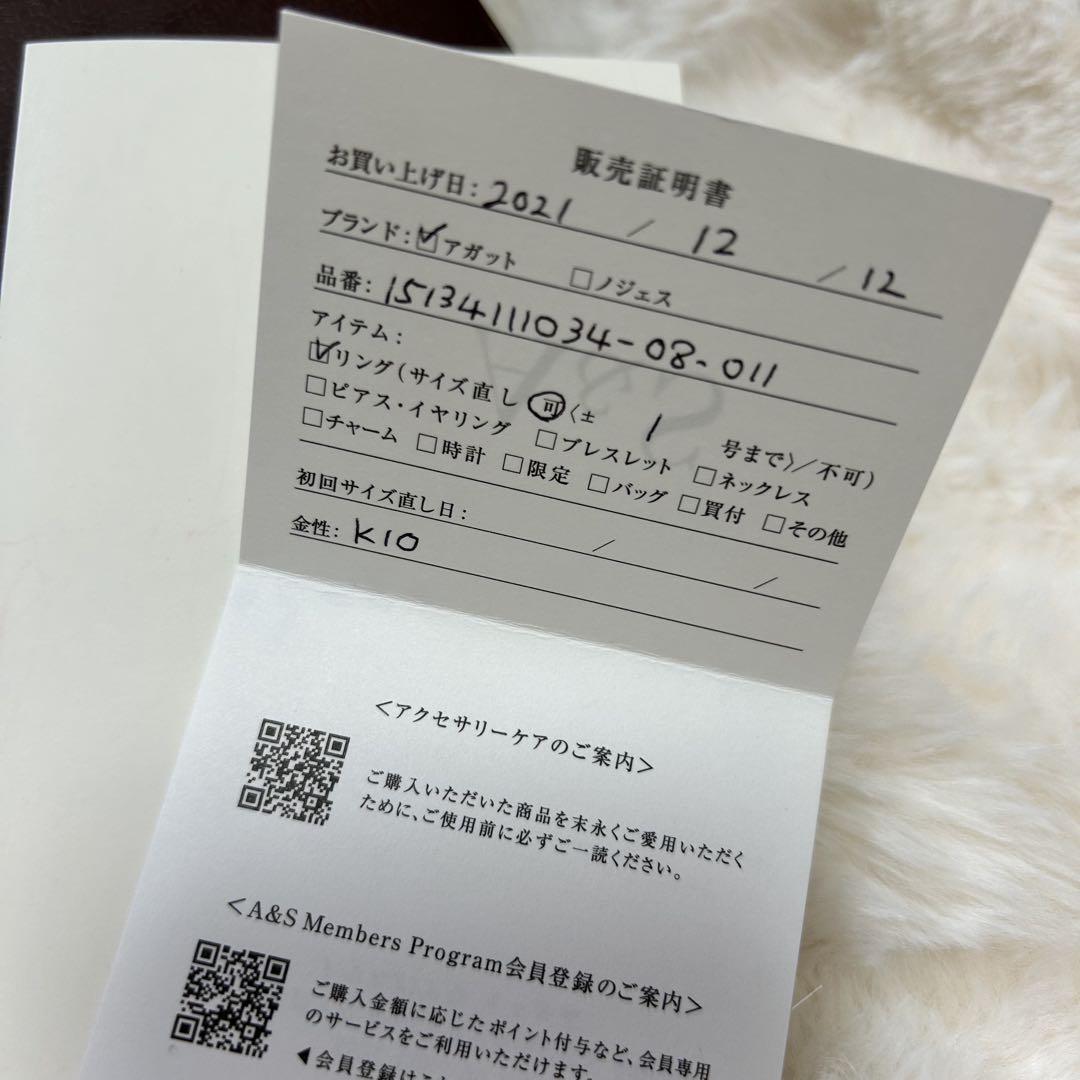 販売証明書
お買い上げ日：2021 / 12 / 12
ブランド：☑アガット □ノジェス
品番：15134111034-08-011
アイテム：
☑リング（サイズ直し 可〈± 1 号まで〉/不可）
□ピアス・イヤリング □ブレスレット □ネックレス
□チャーム □時計 □限定 □バッグ □買付 □その他
初回サイズ直し日： / /
金性：K10
＜アクセサリーケアのご案内＞
ご購入いただいた商品を末永くご愛用いただく
ために、ご使用前に必ずご一読ください。
＜A&S Members Program会員登録のご案内＞
ご購入金額に応じたポイント付与など、会員専用
のサービスをご利用いただけます。
◀会員登録は